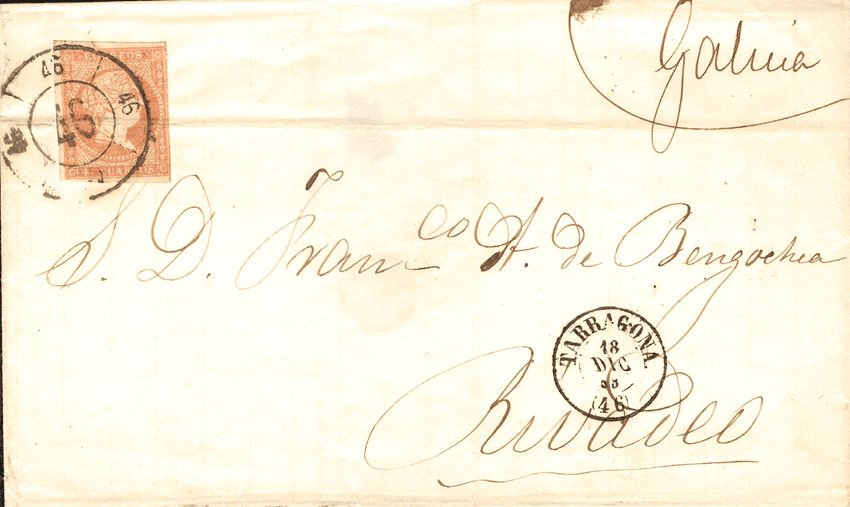 Galicia
46
46
46
CUARTOS
S. D. Fran.co A. de Bengochea
TARRAGONA.
18
DIC
(46)
Rivadeo